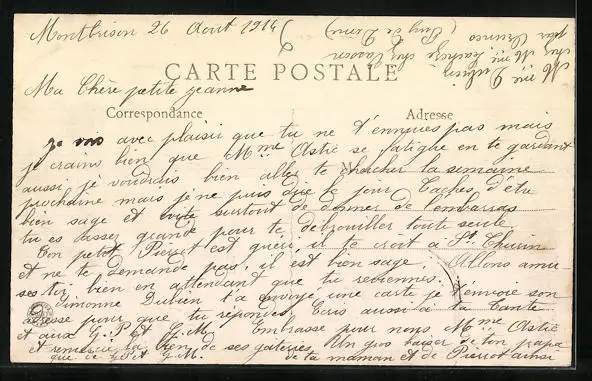 Montbrison 26 Août 1914
CARTE POSTALE
Ma Chère petite jeanne
Correspondance
Adresse
je vois avec plaisir que tu ne t'ennuies pas mais
je crains bien que Mme Astic se fatigue en te gardant
aussi je voudrais bien aller te chercher la semaine
prochaine mais je ne puis dire le jour Taches d'être
bien sage et évite surtout de donner de l'embarras
tu es assez grande pour te débrouiller toute seule
Ton petit Pierrot est guéri, il te croit à St Thurin
et ne te demande pas, il est bien sage. Allons amu-
ses toi bien en attendant que tu reviennes.
Simonne Dubien t'a envoyé une carte je t'envoie son
adresse pour que tu répondes, Ecris aussi à ta Tante
et aux G. P. et G. M. Embrasse pour nous Mme Astic
et remercie la bien de ses gâteries. Un gros baiser de ton papa
que de G.P. et G.M. de ta maman et de Pierrot ainsi
Mlle Dubien
chez Mme
par (Puy de Dôme)